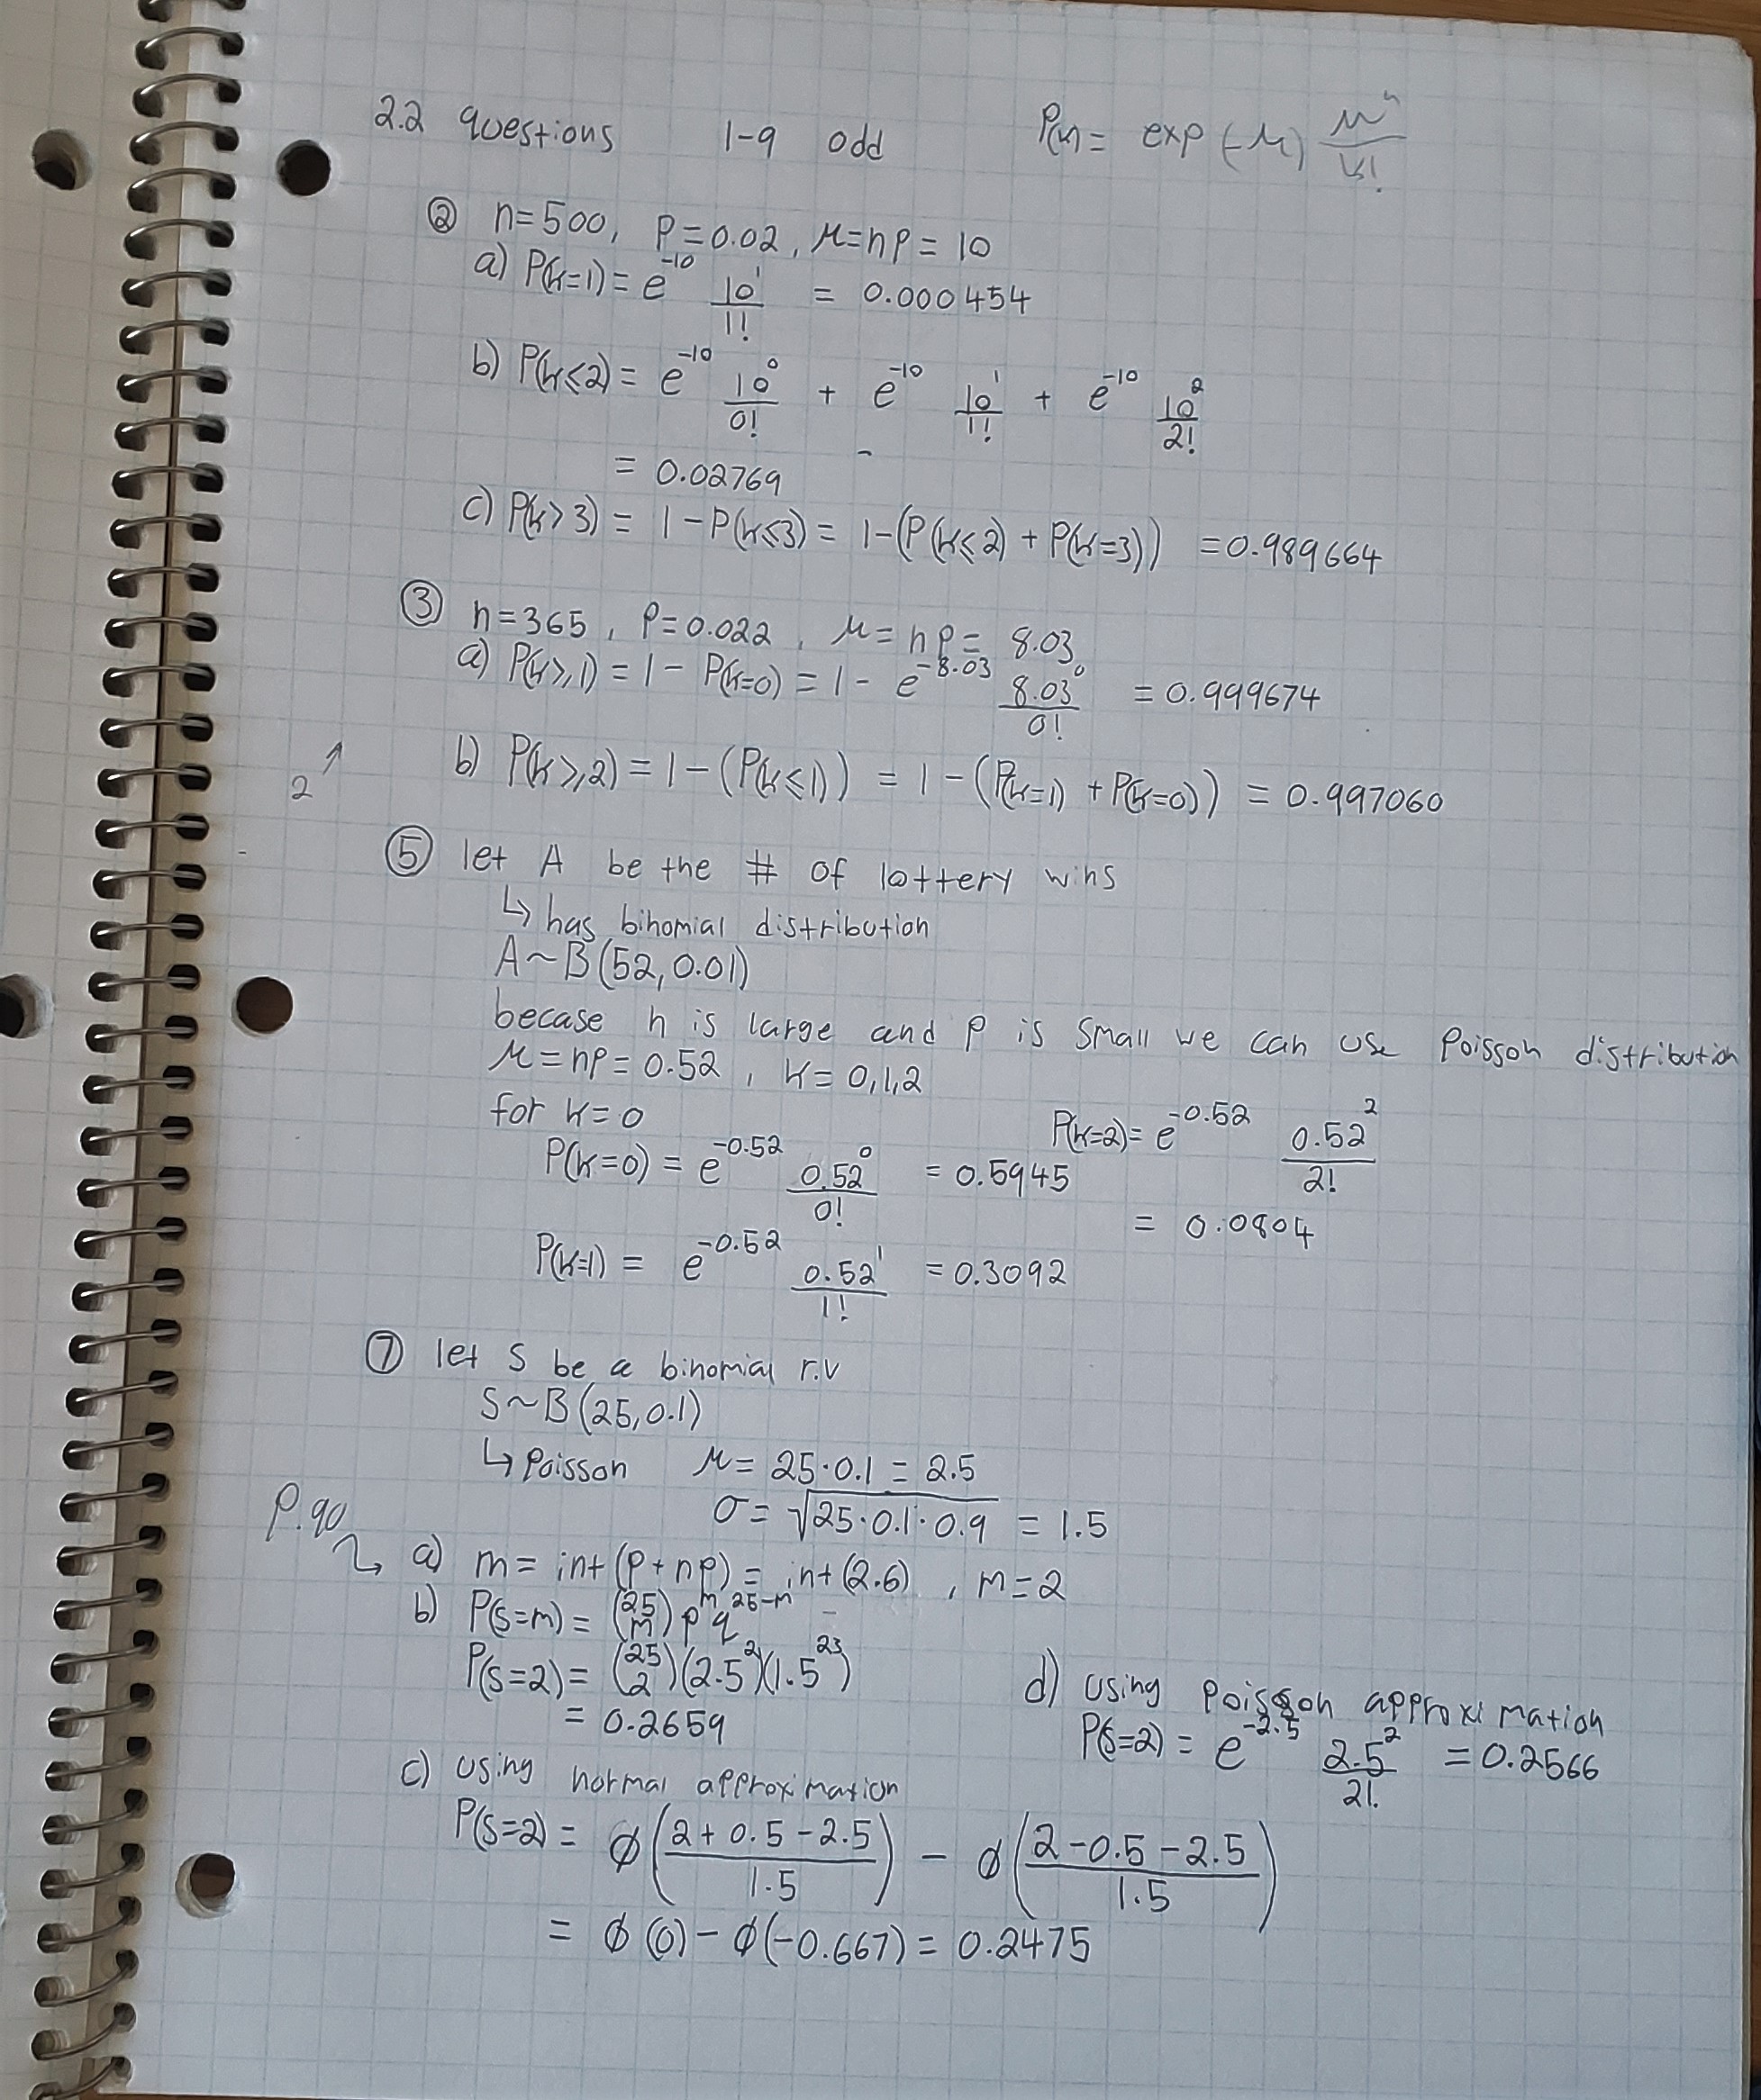 2.2 questions 1-9 odd P(k) = exp(-μ) μᵏ/k!
② n=500, P=0.02, μ=np=10
a) P(k=1) = e⁻¹⁰ 10¹/1! = 0.000454
b) P(k≤2) = e⁻¹⁰ 10⁰/0! + e⁻¹⁰ 10¹/1! + e⁻¹⁰ 10²/2!
= 0.02769
c) P(k>3) = 1-P(k≤3) = 1-(P(k≤2) + P(k=3)) = 0.989664
③ n=365, P=0.022, μ=np= 8.03
a) P(k≥1) = 1 - P(k=0) = 1 - e⁻⁸·⁰³ 8.03⁰/0! = 0.999674
2 ↗
b) P(k≥2) = 1-(P(k≤1)) = 1-(P(k=1) + P(k=0)) = 0.997060
⑤ let A be the # of lottery wins
↳ has binomial distribution
A~B(52,0.01)
becase n is large and p is small we can use Poisson distribution
μ=np=0.52, k=0,1,2
for k=0
P(k=0) = e⁻⁰·⁵² 0.52⁰/0! = 0.5945
P(k=1) = e⁻⁰·⁵² 0.52¹/1! = 0.3092
P(k=2) = e⁻⁰·⁵² 0.52²/2!
= 0.0804
⑦ let S be a binomial r.v
S~B(25,0.1)
↳ Poisson μ = 25·0.1 = 2.5
σ = √25·0.1·0.9 = 1.5
P.90
a) m = int(p+np) = int(2.6), m=2
b) P(S=m) = (25 m) pᵐ q²⁵⁻ᵐ
P(S=2) = (25 2)(2.5²)(1.5²³)
= 0.2659
c) using normal approximation
P(S=2) = Φ((2+0.5-2.5)/1.5) - Φ((2-0.5-2.5)/1.5)
= Φ(0) - Φ(-0.667) = 0.2475
d) using Poisson approximation
P(S=2) = e⁻²·⁵ 2.5²/2! = 0.2566